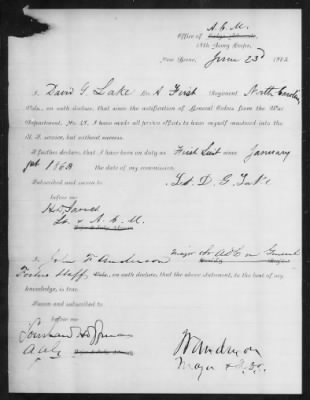 A. C. M.
Office of
18th Army Corps,
New Berne, June 23d 1863
I, David G. Lake Co. A First Regiment North Carolina
Vols., on oath declare, that since the notification of General Orders from the War
Department, No. 48, I have made all proper efforts to have myself mustered into the
U. S. service, but without success.
I further declare, that I have been on duty as First Lieut since January
1st 1863 the date of my commission.
Subscribed and sworn to
Lt. D. G. Lake
before me
H. D. Jones
Lt. & A. C. M.
I, John F. Anderson Major & ADC on General
Fosters Staff, Vols., on oath declare, that the above statement, to the best of my
knowledge, is true.
Sworn and subscribed to
before me
Southard Hoffman
AAG
Anderson
Major & A.D.C.